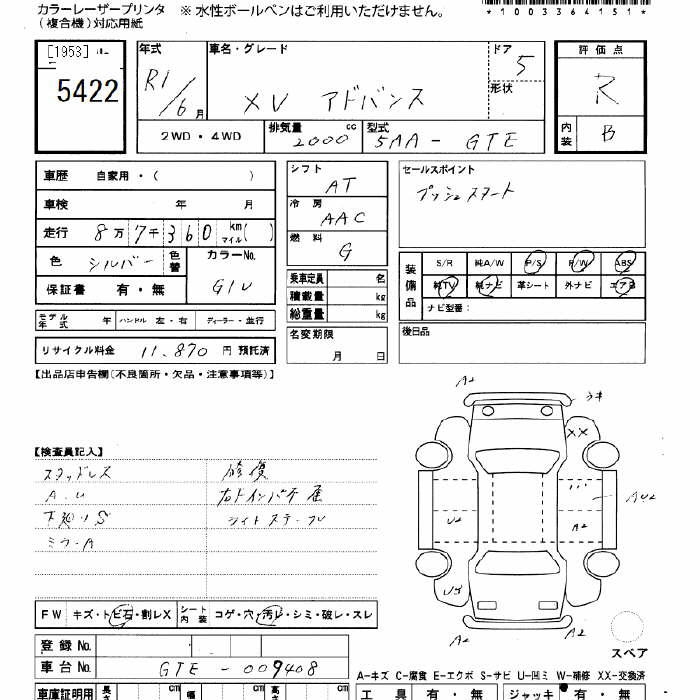 カラーレーザープリンタ ※ 水性ボールペンはご利用いただけません。
(複合機)対応用紙
*1003364151*
[1953]
5422
年式 R1/6月
車名・グレード XV アドバンス
ドア 5
形状
評価点 R
内装 B
2WD・4WD
排気量 2000 cc
型式 5AA-GTE
車歴 自家用・( )
車検 年 月
走行 8万7千360 km マイル( )
色 シルバー 色替
カラーNo. G1U
保証書 有・無
シフト AT
冷房 AAC
燃料 G
乗車定員 名
積載量 kg
総重量 kg
セールスポイント
プッシュスタート
装備品
S/R 純A/W P/S P/W ABS
純TV 純ナビ 革シート 外ナビ エアB
ナビ型番:
モデル年式 年 ハンドル 左・右 ディーラー・並行
リサイクル料金 11,870 円 預託済
名変期限 月 日
後日品
【出品店申告欄(不良箇所・欠品・注意事項等)】
【検査員記入】
スタッドレス
A.U
下廻りS
ミラーA
修復
右トインパチ
ライトステー
A2
ウキ
XX
AU2
U2
A2
U3
A2
A2
スペア
FW キズ・トビ石・割レX シート内装 コゲ・穴・汚レ・シミ・破レ・スレ
登録No.
車台No. GTE-009408
A-キズ C-腐食 E-エクボ S-サビ U-凹ミ W-補修 XX-交換済
車庫証明用 長さ cm 幅 cm 高さ cm
工具 有・無 ジャッキ 有・無